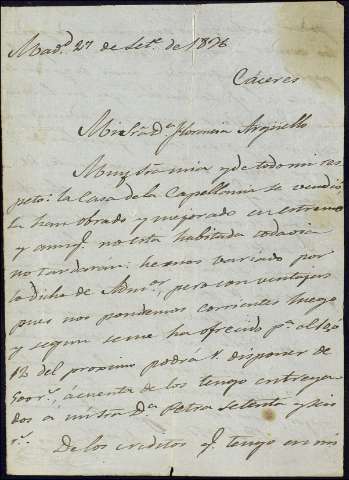 Mad.d 27 de Set.e de 1876
Cáceres
Mi Sra D.a Florencia Arguello
Muy Sra mia y de todo mi res
peto: la Casa de la Capellania se vendió
la han obrado y mejorado en estremo
y aunq. no está habitada todavia
no tardarán: hemos variado por
la dicha de, pero con ventajas
pues nos pondremos corrientes luego
y segun se me ha ofrecido p.a el 10 ó
12 del proximo podrá V. disponer de
500 r.s, á cuenta de los tengo entrega
dos á nuestra D.a Petra setenta y seis
r.s
De los creditos q. tengo en mi